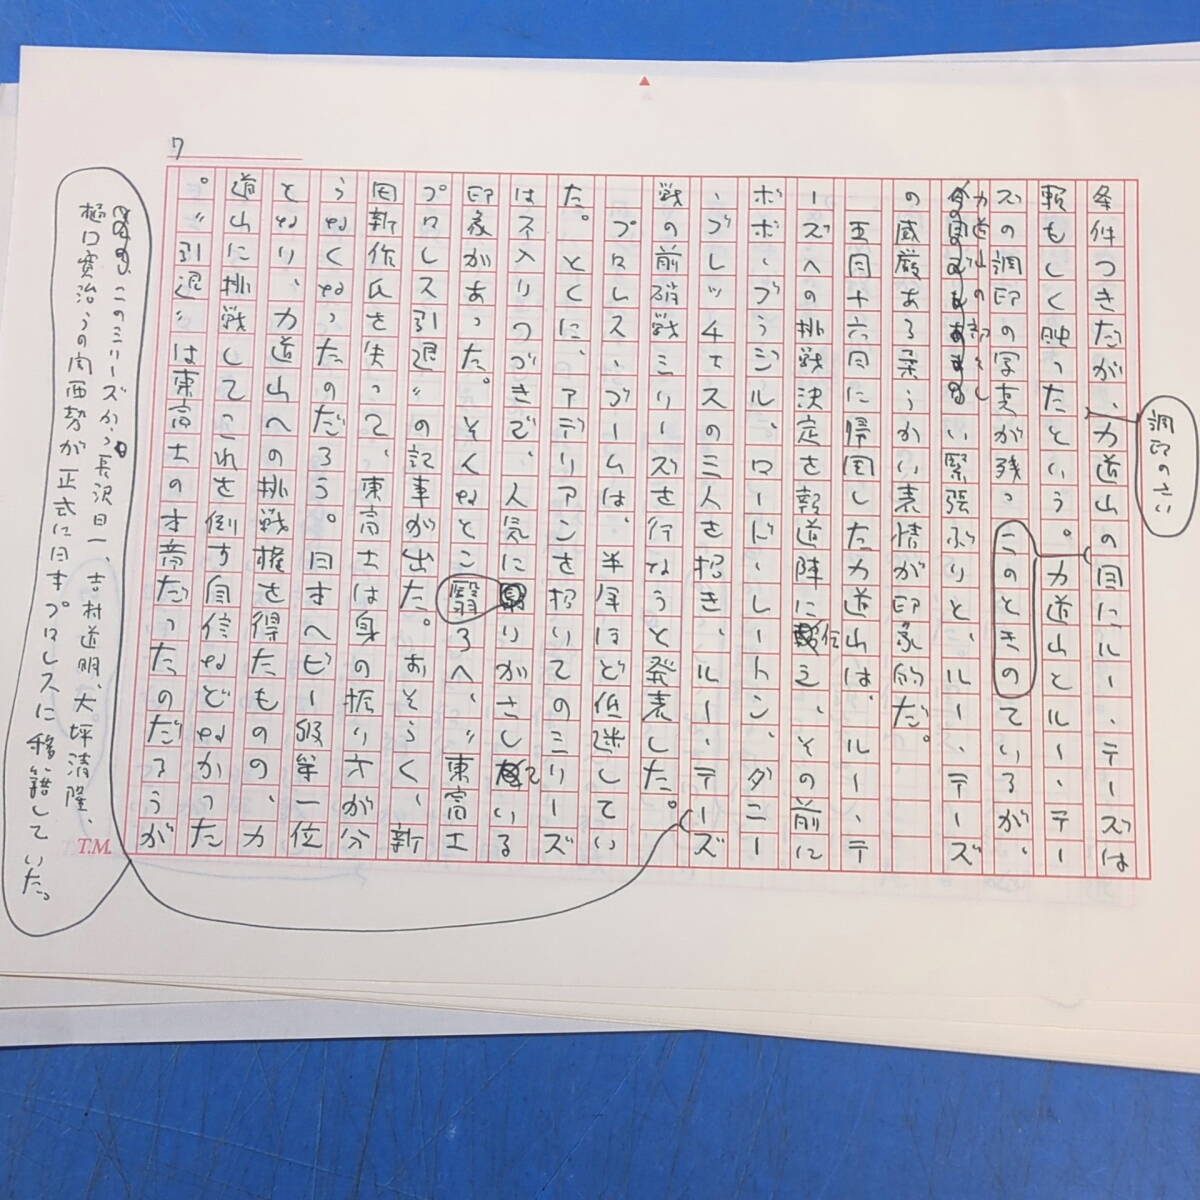 7
条件つきだが、力道山の目にルー・テーズは
調印の六い
頼もしく映ったという。力道山とルー・テー
ズの調印の写真が残っているが、
このときの
力道山の
い緊張ぶりと、ルー・テーズ
の威厳ある柔らかい表情が印象的だ。
五月十六日に帰国した力道山は、ルー・テ
ーズへの挑戦決定を報道陣に伝え、その前に
ボボ・ブラジル、ロード・レートン、ダニー
・ブレッチエスの三人を招き、ルー・テーズ
戦の前哨戦シリーズを行なうと発表した。
プロレス・ブームは、半年ほど低迷してい
た。とくに、アデリアンを招いてのシリーズ
はスベリつづきで、人気に翳りがさしている
印象があった。そんなところへ、〝東富士
プロレス引退〟の記事が出た。おそらく、新
田新作氏を失って、東富士は身の振り方が分
らなくなったのだろう。日本ヘビー級第一位
となり、力道山への挑戦権を得たものの、力
道山に挑戦してこれを倒す自信などなかった
。〝引退〟は東富士の本音だったのだろうが
このシリーズから長沢日一、吉村道明、大坪清隆、
樋口寛治らの関西勢が正式に日本プロレスに移籍していた。
T.M.